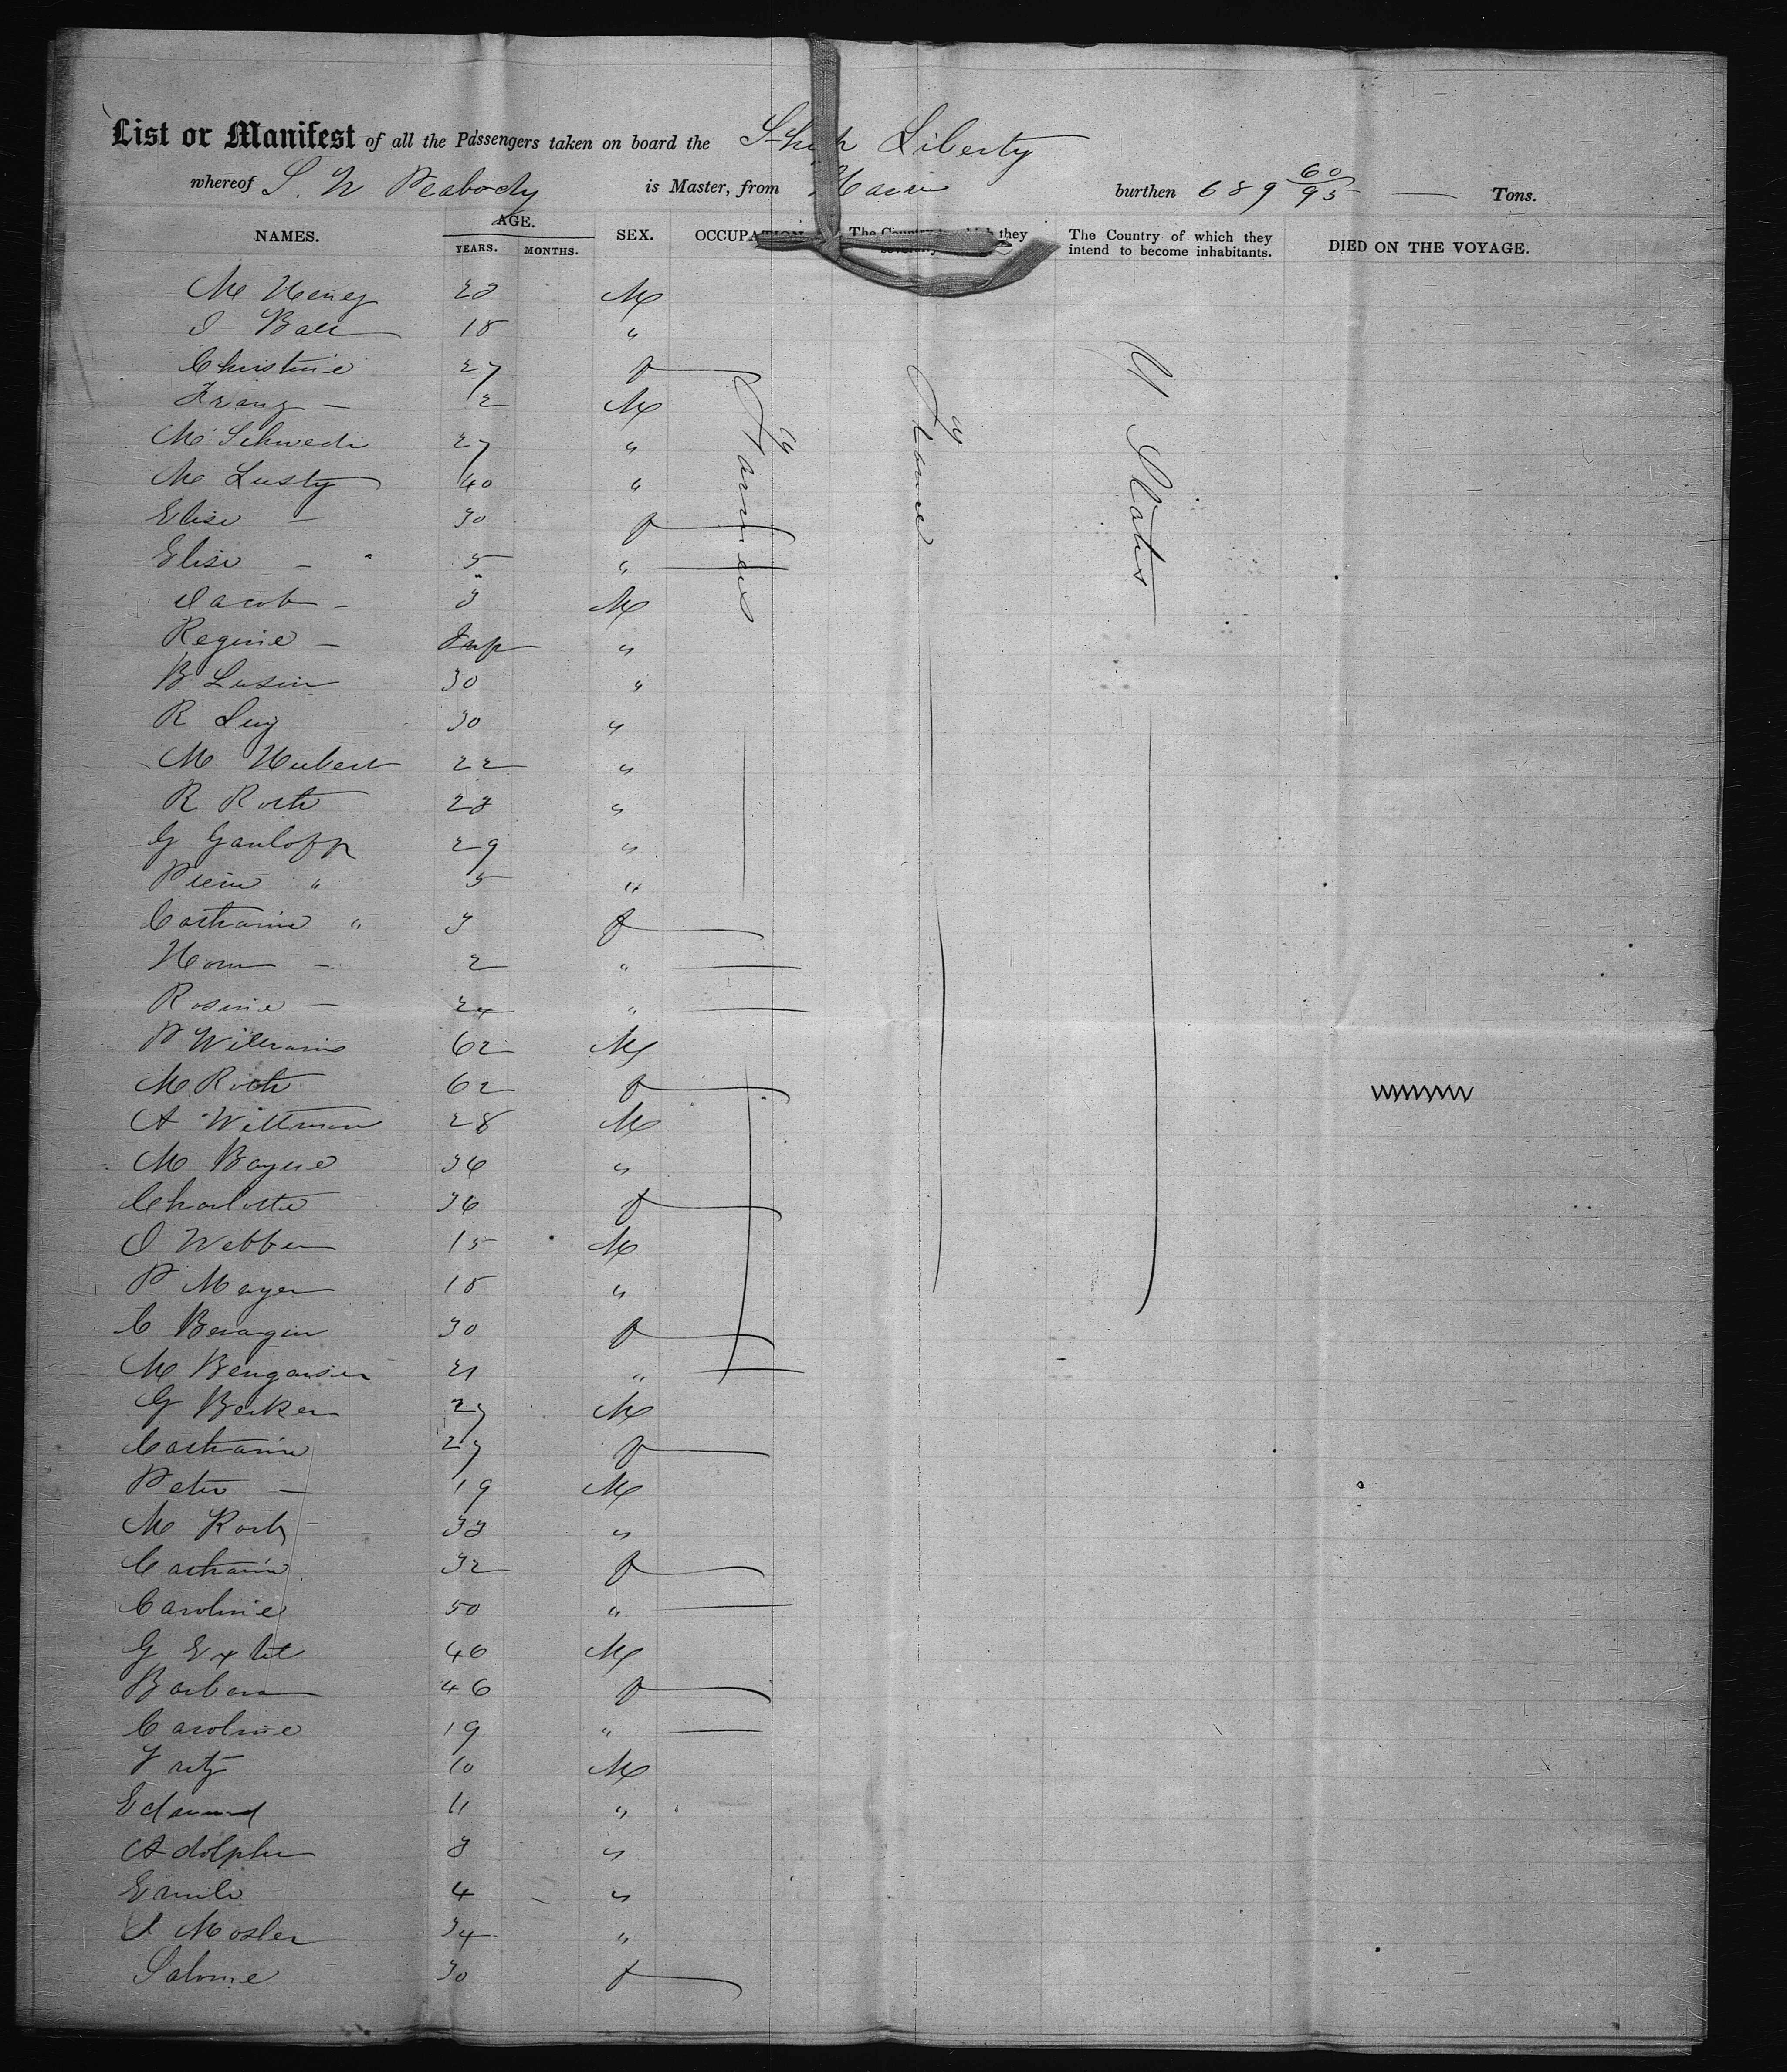 List or Manifest of all the Passengers taken on board the Ship Liberty
whereof S. W Peabody is Master, from burthen 689 60/95 Tons.
NAMES. AGE. YEARS. MONTHS. SEX. OCCUPATION The Country which they severally The Country of which they intend to become inhabitants. DIED ON THE VOYAGE.
Farmers France U States
M Heney 23 M
J Ball 18 "
Christine 27 f
Franz — 12 M
M Schwedi 27 "
M Lusty 40 "
Elise — 30 f
Elise — 5 "
Jacob — 3 M
Regine — Inf "
B Lusin 30 "
R 30 "
M Hubert 22 "
R Roth 23 "
G Gaulopp 29 "
" 5 "
Catharine " 3 f
— 2 "
Rosine — 24 "
P Williams 62 M
M Roth 62 f
A Wittman 28 M
M Bayne 36 "
Charlotte 36 f
J Webber 15 M
P Mayer 18 "
C 30 f
M 21 "
G Becker 27 M
Catharine 27 f
Peter — 19 M
M Roth 33 "
Catharine 32 f
Caroline 50 "
G 40 M
Barbara 46 f
Caroline 19 "
Fritz 10 M
Edmund 11 "
Adolphe 3 "
Emile 4 "
J Mosler 34 "
Salome 30 f